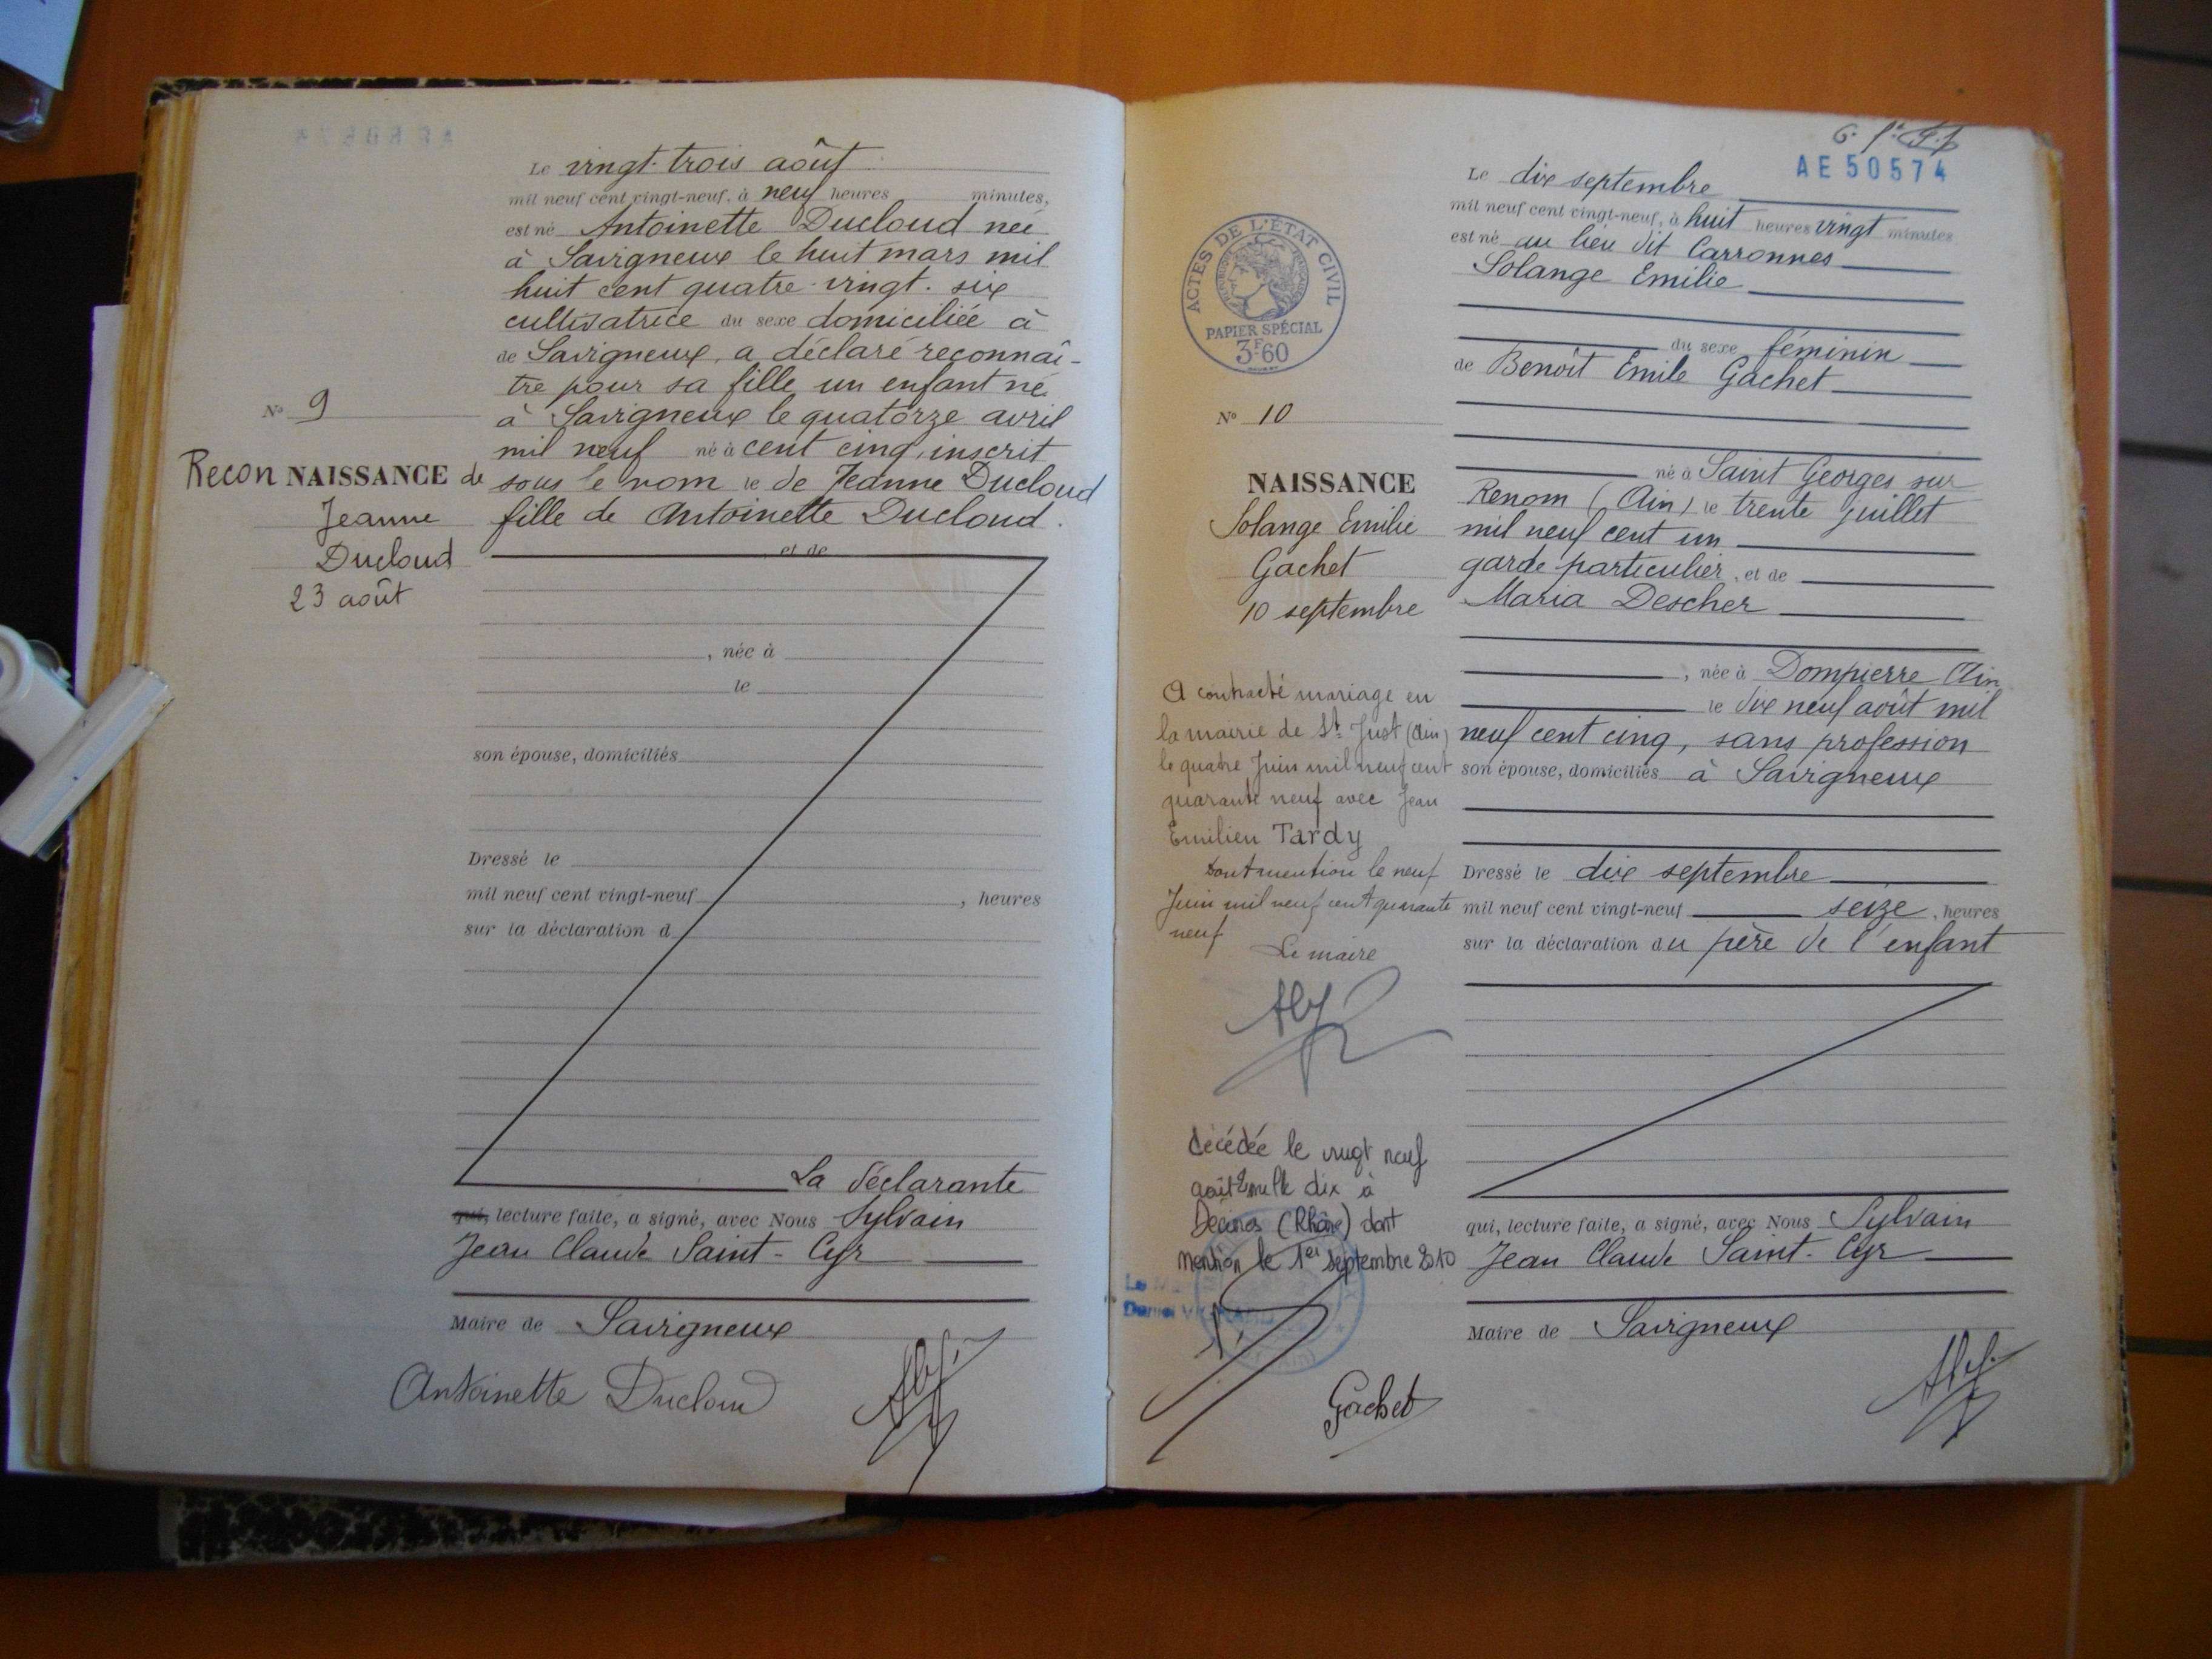 Le vingt-trois août
mil neuf cent vingt-neuf, à neuf heures minutes,
est né Antoinette Ducloud née
à Savigneux le huit mars mil
huit cent quatre-vingt-six
cultivatrice du sexe domiciliée à
de Savigneux, a déclaré reconnaî-
tre pour sa fille un enfant né
à Savigneux le quatorze avril
mil neuf né à cent cinq, inscrit
sous le nom le de Jeanne Ducloud
fille de Antoinette Ducloud.
et de
N° 9
Recon NAISSANCE de
Jeanne
Ducloud
23 août
, née à
le
son épouse, domiciliés
Dressé le
mil neuf cent vingt-neuf , heures
sur la déclaration d
La déclarante
qui, lecture faite, a signé, avec Nous Sylvain
Jean Claude Saint-Cyr
Maire de Savigneux
Antoinette Ducloud
AE 50574
Le dix septembre
mil neuf cent vingt-neuf, à huit heures vingt minutes
est né au lieu dit Carronnes
Solange Emilie
du sexe féminin
de Benoît Emile Gachet
né à Saint Georges sur
Renom (Ain) le trente juillet
mil neuf cent un
garde particulier, et de
Maria Descher
, née à Dompierre Ain
le dix neuf août mil
neuf cent cinq, sans profession
son épouse, domiciliés à Savigneux
Dressé le dix septembre
mil neuf cent vingt-neuf seize, heures
sur la déclaration du père de l'enfant
qui, lecture faite, a signé, avec Nous Sylvain
Jean Claude Saint-Cyr
Maire de Savigneux
ACTES DE L'ÉTAT CIVIL
PAPIER SPÉCIAL
3F60
N° 10
NAISSANCE
Solange Emilie
Gachet
10 septembre
A contracté mariage en
la mairie de St Just (Ain)
le quatre Juin mil neuf cent
quarante neuf avec Jean
Emilien Tardy
Dont mention le neuf
Juin mil neuf cent quarante
neuf
Le maire
décédée le vingt neuf
août 2 mille dix à
Décines (Rhône) dont
mention le 1er septembre 2010
Gachet